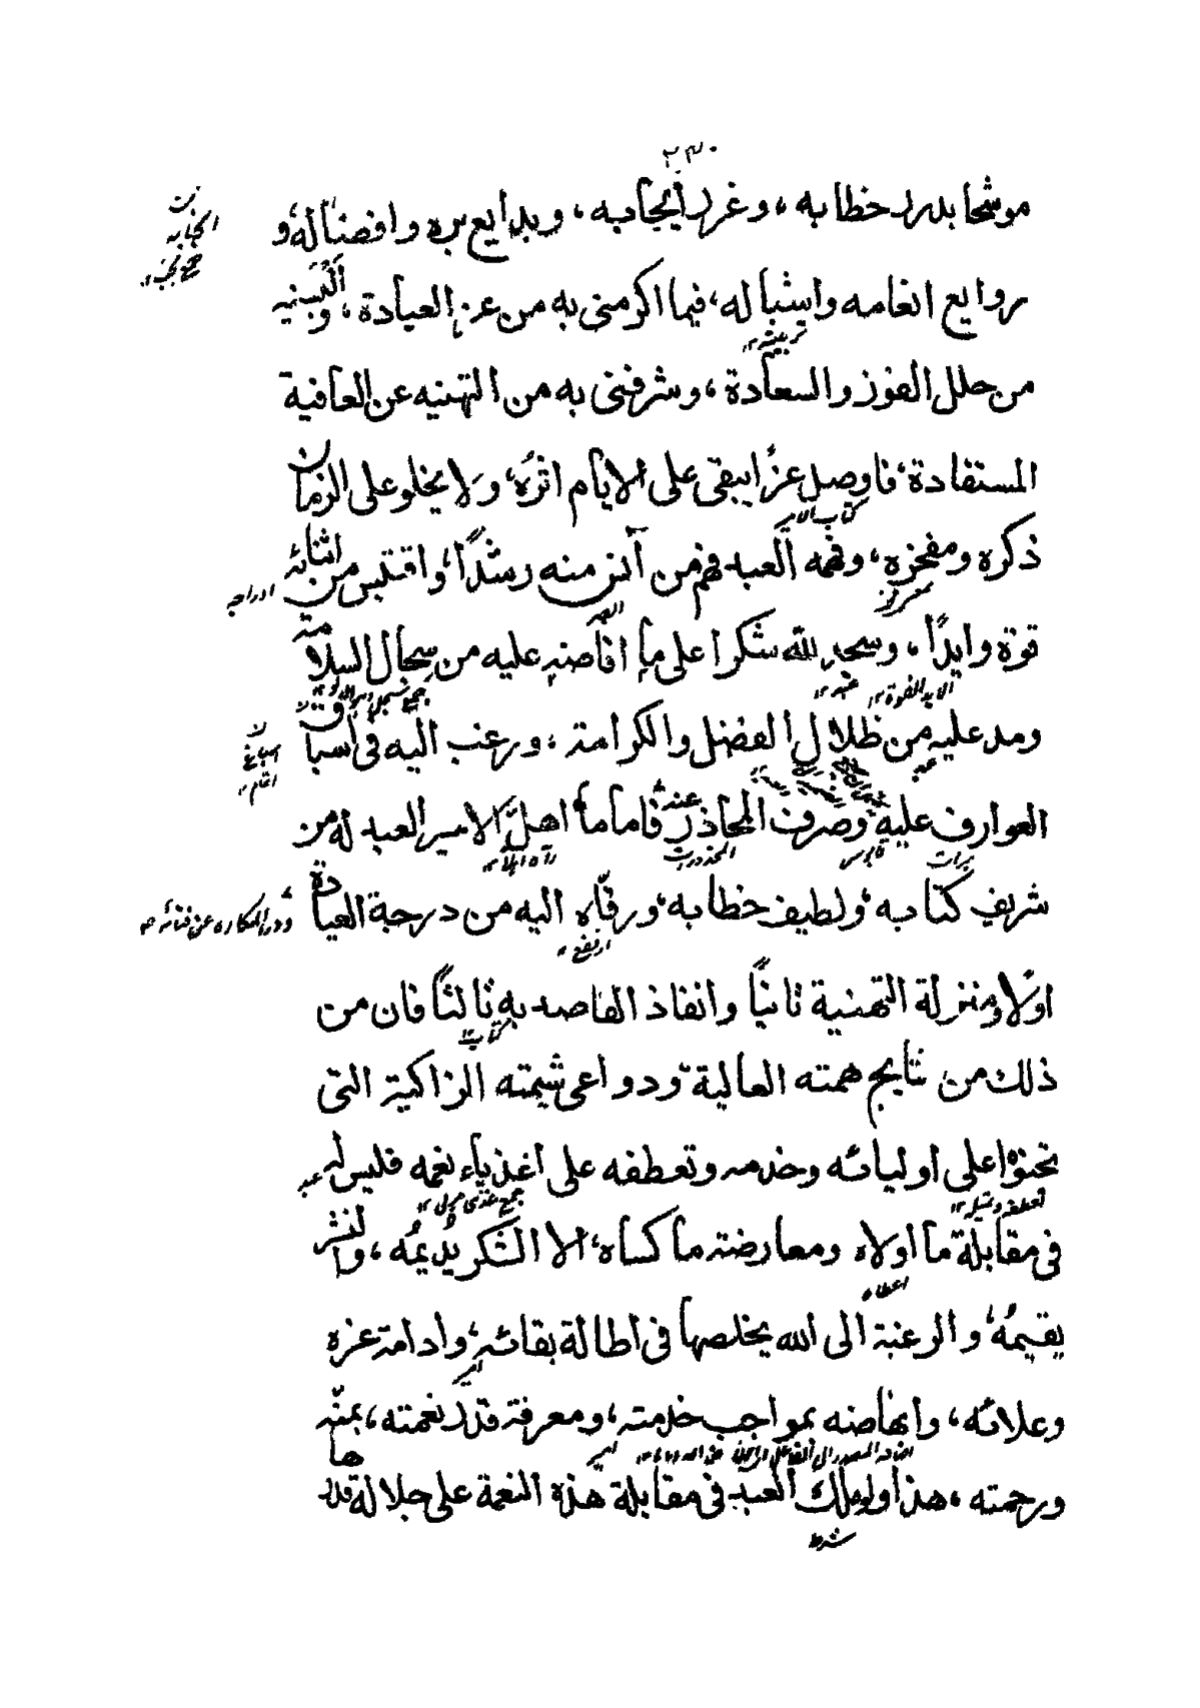 ٢٣٠
موشحا بدرر خطابه، وغرر ايجابه، وبدايع بره وافضاله، و
انجابه
روايع انعامه واشباله، فيما اكرمنى به من عز العيادة، والبسنيه
تربيته
من حلل الفوز والسعادة، وشرفنى به من التهنيه عن العافية
المستفادة، فاوصل عزا يبقى على الايام اثره، ولا يخلو على الزمان
كتاب الامير
ذكره ومفخره، وفهمه العبد فهم من آنس منه رشدا، واقتبس من اثنائه
ادراجه
قوة وايدا، وسجد لله شكرا على ما افاضه عليه من سجال السلامة
الايد القوة
ومد عليه من ظلال الفضل والكرامة، ورغب اليه فى اسباغ
اسباغ
اتمام
العوارف عليه وصرف المحاذر عنه فاما ما اهل الامير العبد له من
المحذورات
رآه اهلا
شريف كتابه، ولطيف خطابه، ورقاه اليه من درجة العيادة
ودرء المكاره عن فنائه
ارتفع
اولا ومنزلة التهنية ثانيا وانفاذ القاصد به ثالثا فان من
كتاب
ذلك من نتايج همته العالية ودواعى شيمته الزاكية التى
تحنو على اوليائه وخدمه وتعطفه على اغذياء نعمه فليس له
عبد
فى مقابلة ما اولاه ومعارضة ما كساه، الا الشكر يديمه، والنشر
اعطاه
يقيمه، والرغبة الى الله يخلصها فى اطالة بقائه، وادامة عزه
امير
وعلائه، وانهاضه بمواجب خدمته، ومعرفة قدر نعمته، بمنه
ورحمته، هذا ولو ملك العبد فى مقابلة هذه النعمة على جلالة قدرها
شرط